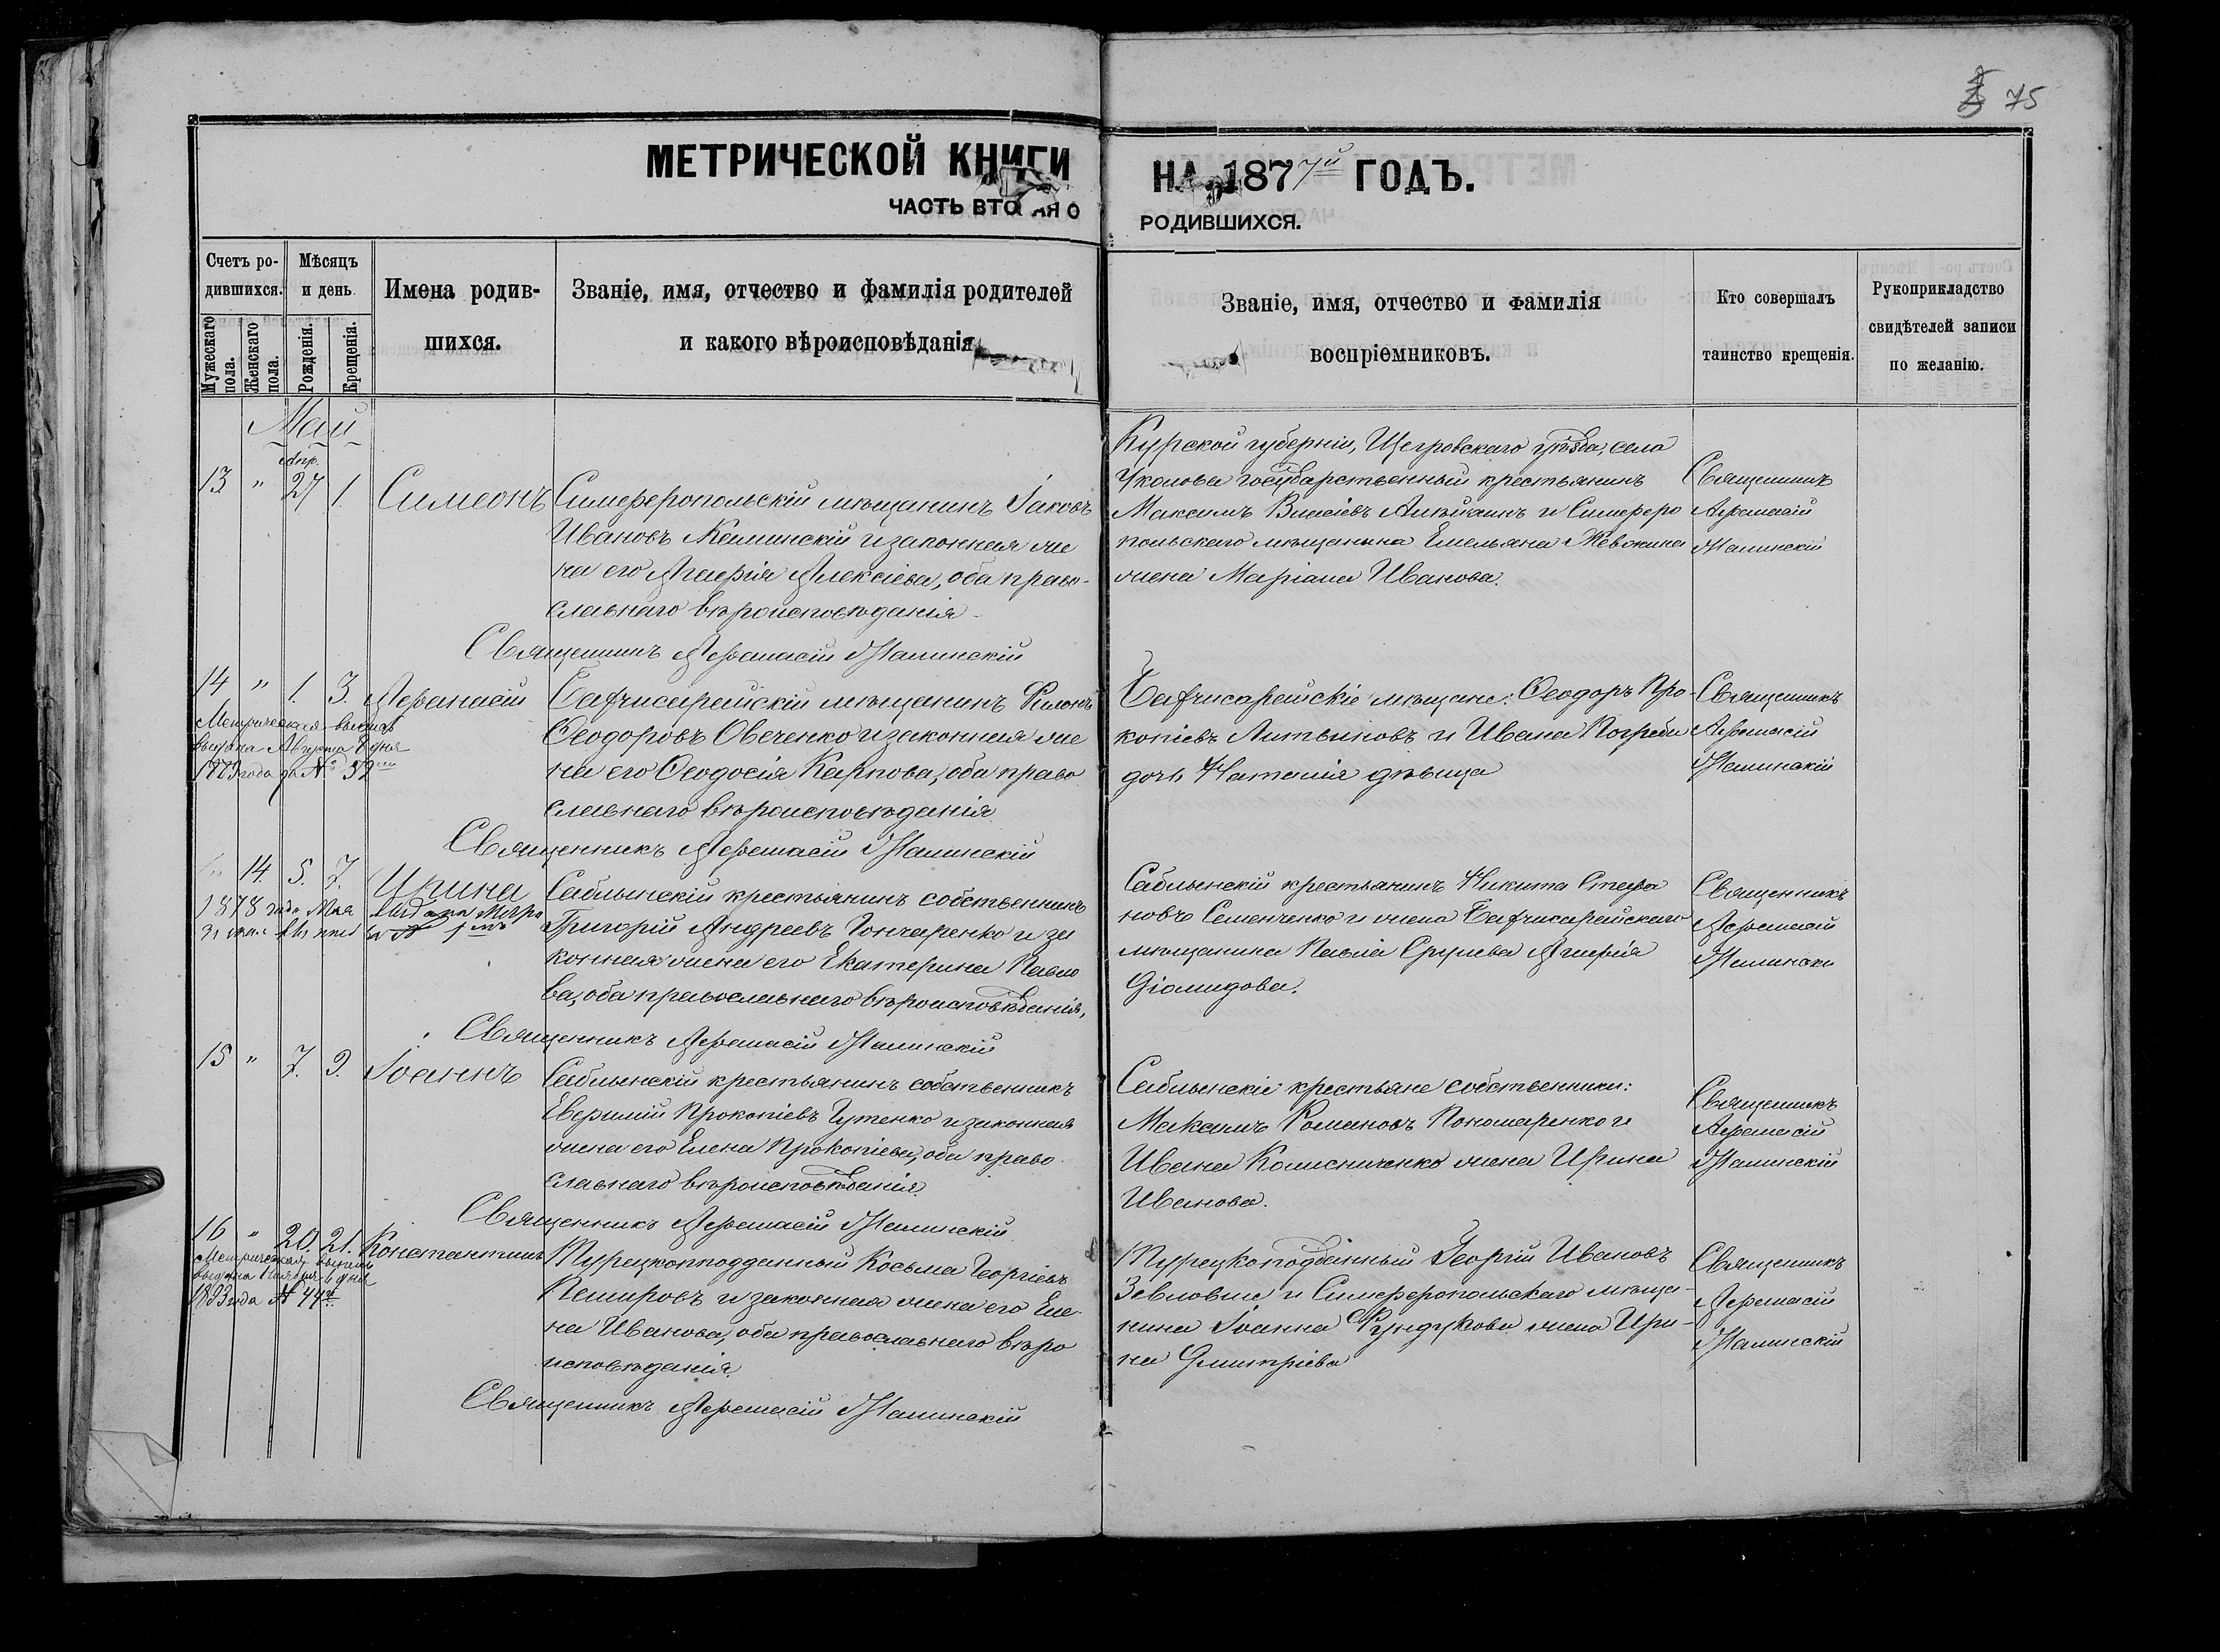 75
МЕТРИЧЕСКОЙ КНИГИ НА 1877й ГОДЪ.
ЧАСТЬ ВТОРАЯ О РОДИВШИХСЯ.
Счетъ родившихся.
Мужескаго пола.
Женскаго пола.
Мѣсяцъ и день
Рожденія.
Крещенія.
Имена родив-
шихся.
Званіе, имя, отчество и фамилія родителей
и какого вѣроисповѣданія
Званіе, имя, отчество и фамилія
воспріемниковъ.
Кто совершалъ
таинство крещенія.
Рукоприкладство
свидѣтелей записи
по желанію.
Май
Апр.
13 " 27 1. Симеонъ
Симферопольскій мѣщанинъ Іаковъ
Ивановъ и законная же
на его Агафія Алексіева, оба право-
славнаго вѣроисповѣданія
Священникъ Афанасій
Курской губерніи, Щегровскаго уѣзда, села
государственный крестьянинъ
Максимъ и Симферо
польскаго мѣщанина Емельяна
жена Маріана Иванова.
Священникъ
Афанасій
14 " 1. 3. Афанасій
Метрическая выпись
выдана Августа дня
года за №
Бахчисарейскій мѣщанинъ Филонъ
Ѳеодоровъ Овченко и законная же
на его Ѳеодосія Карпова, оба право
славнаго вѣроисповѣданія
Священникъ Афанасій
Бахчисарейскіе мѣщане: Ѳеодоръ Про-
копіевъ Литвиновъ и Ивана Погреби
дочь Наталія дѣвица
Священникъ
Афанасій
" 14. 5. 7. Ирина
1878 года Мая
выдана Метри
Саблынскій крестьянинъ собственникъ
Григорій Андреевъ Гончаренко и за
конная жена его Екатерина Павло
ва, оба православнаго вѣроисповѣданія,
Священникъ Афанасій
Саблынскій крестьянинъ Никита Стефа
новъ Семенченко и жена Бахчисарейскаго
мѣщанина Павла Агафія
Діомидова.
Священникъ
Афанасій
15 " 7. 9. Іоаннъ
Саблынскій крестьянинъ собственникъ
Евфимій Прокопіевъ Гутенко и законная
жена его Елена Прокопіева, оба право
славнаго вѣроисповѣданія.
Священникъ Афанасій
Саблынскіе крестьяне собственники:
Максимъ Романовъ Пономаренко и
Ивана Колисниченко жена Ирина
Иванова.
Священникъ
Афанасій
16 " 20. 21. Константинъ
Метрическая выпись
выдана дня
1893 года № 44
Турецкоподданный Косьма Георгіевъ
и законная жена его Еле-
на Иванова, оба православнаго вѣро
исповѣданія.
Священникъ Афанасій
Турецкоподданный Георгій Ивановъ
и Симферопольскаго мѣща-
нина Іоанна Фундукова жена Ири-
на Дмитріева
Священникъ
Афанасій